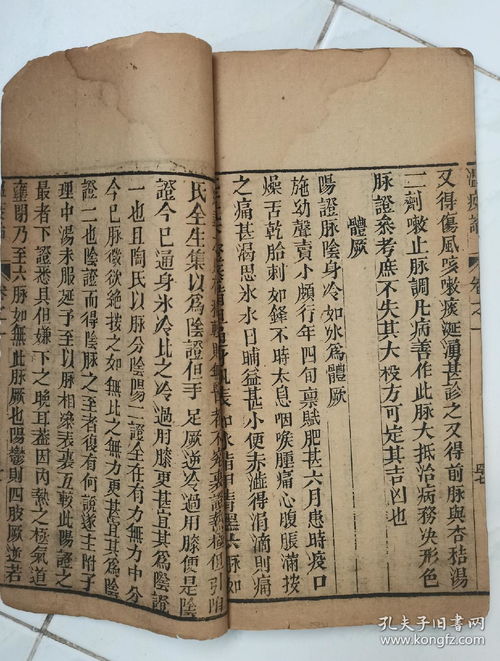 又得傷風咳嗽痰涎湧甚診之又得前脉與杏桔湯
二劑嗽止脉調凡病善作此脉大抵治病務決形色
脉證叅考庶不失其大　方可定其吉凶也
體厥
陽證脉陰身冷如氷爲體厥
施幼聲賣小頗行年四旬禀賦肥甚六月患時疫口
燥舌乾胎刺如鋒不時太息咽喉腫痛心腹脹滿按
之痛甚渴思氷水日晡益甚小便赤澁得涓滴則痛
甚
六脉如
氏全生集以爲陰證但手足厥逆冷過肘膝便是陰
證今已通身氷冷比之冷過肘膝更甚宜其爲陰證
一也且陶氏以脉分陰陽二證全在有力無力中分
今已脉微欲絶按之如無比之無力更甚宜其爲陰
證二也陰證而得陰脉之至者復有何說遂主附子
理中湯未服延予至以脉相叅表裏互較此陽證之
最者下證悉具但嫌下之晚耳葢因内熱之極氣道
壅閉乃至六脉如無此脉厥也陽鬱則四肢厥逆若
孔夫子旧书网
www.kongfz.com